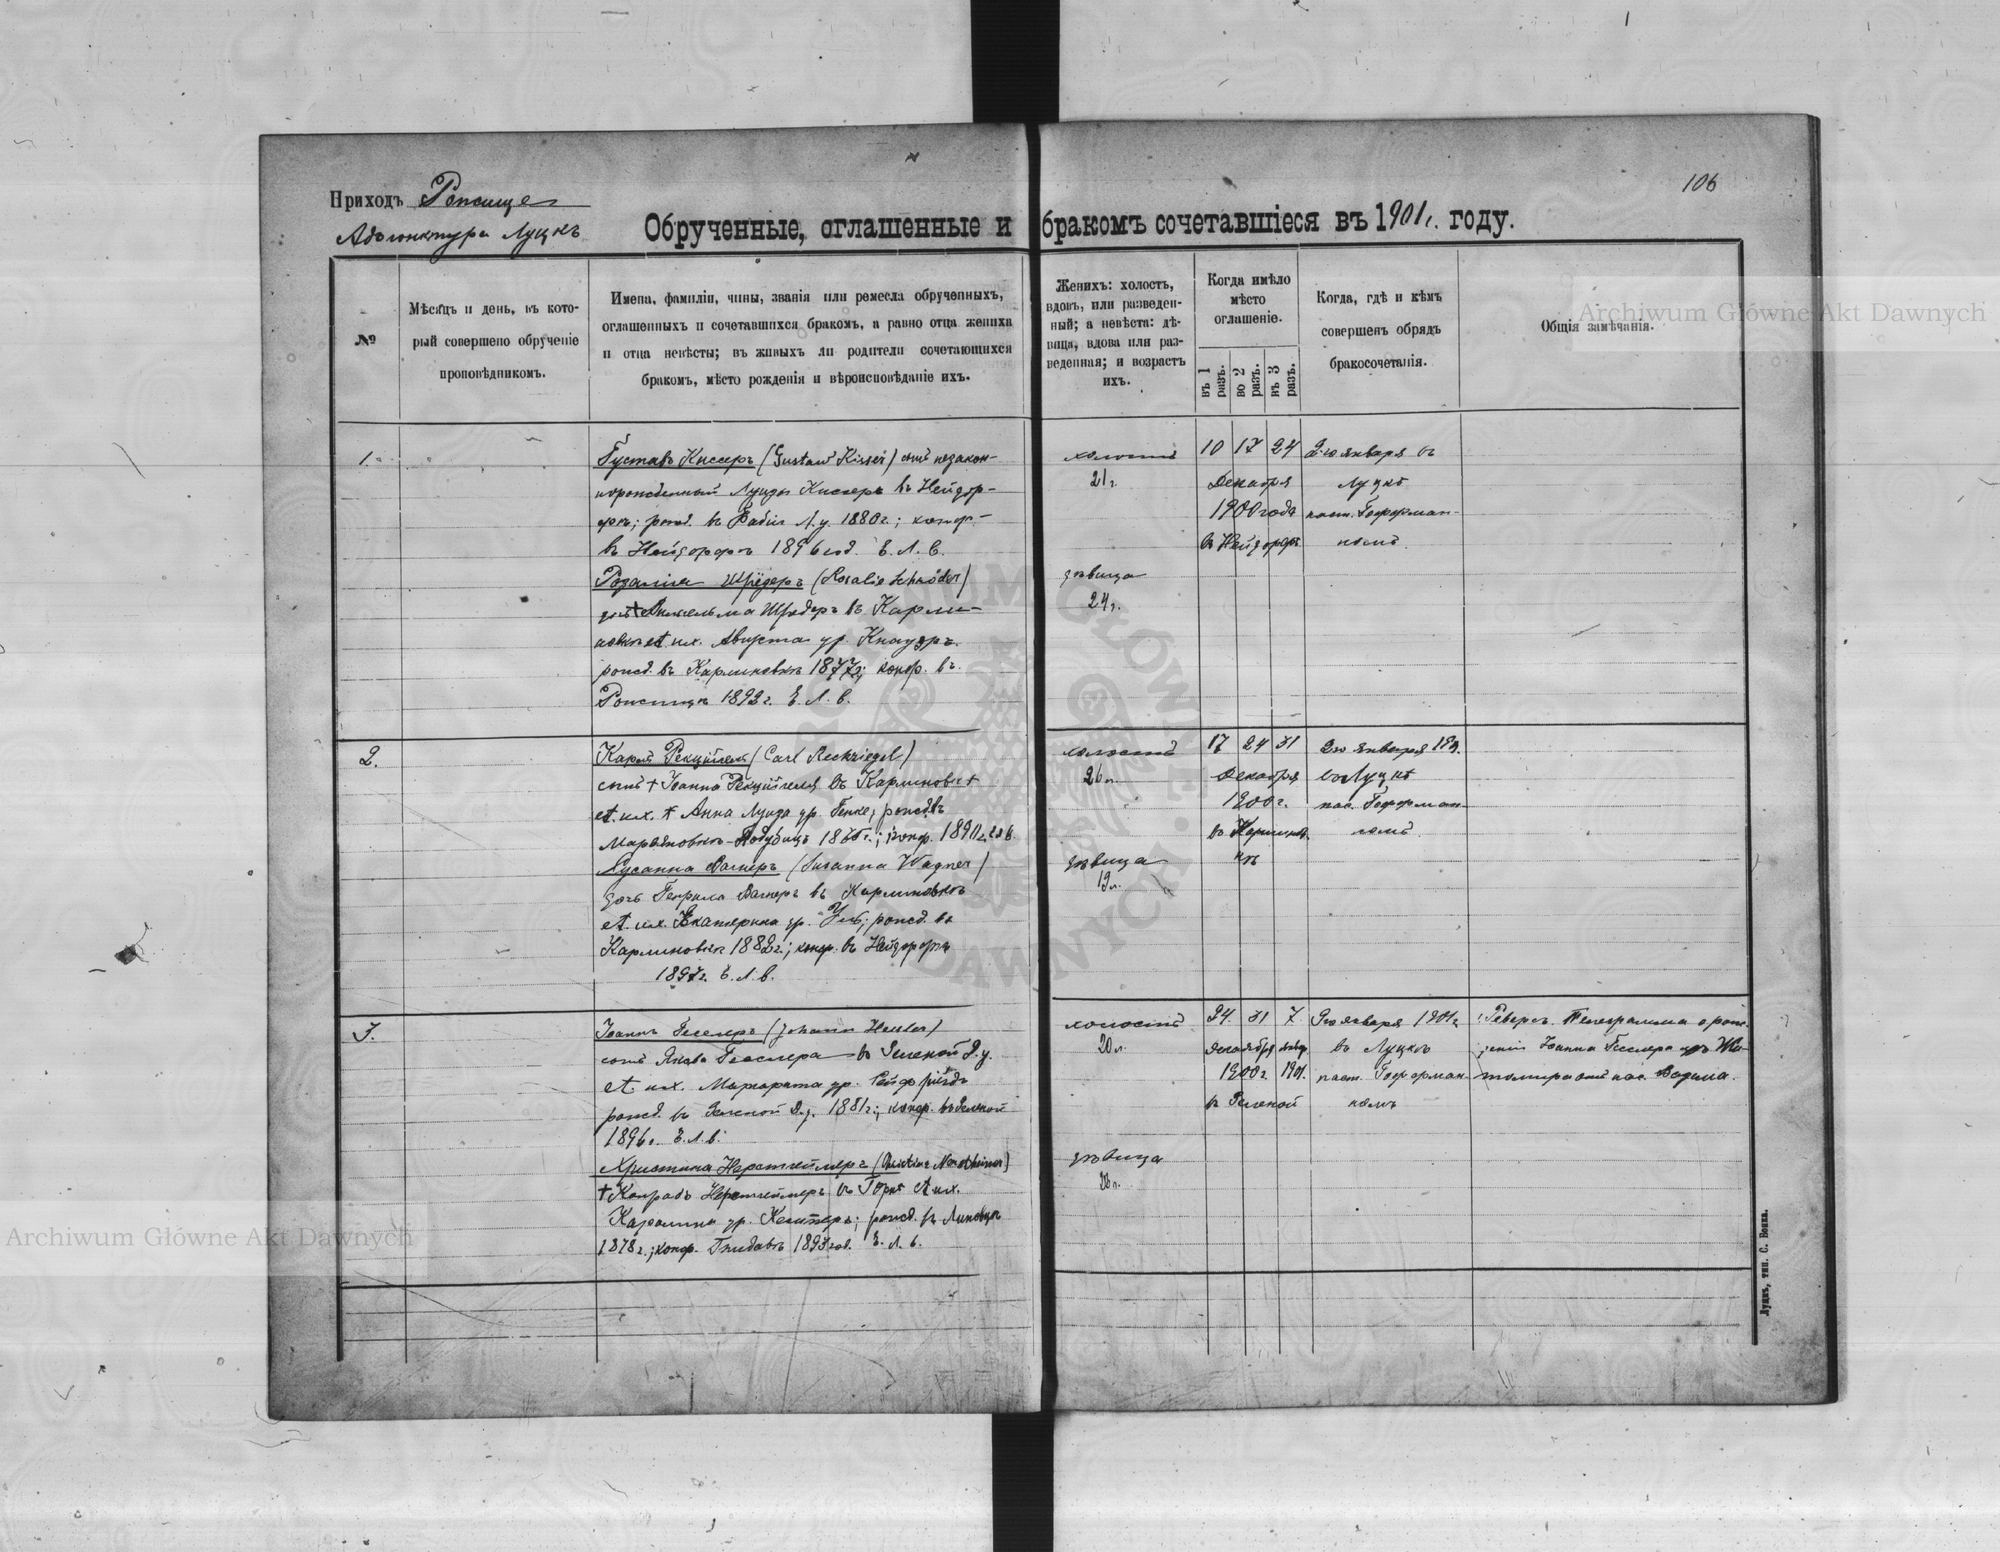 106
Приходъ Рожище
Адъюнктура Луцкъ
Обрученные, оглашенные и бракомъ сочетавшіеся въ 1901 г. году.
№
Мѣсяцъ и день, въ кото-
рый совершено обрученіе
проповѣдникомъ.
Имена, фамиліи, чины, званія или ремесла обрученныхъ,
оглашенныхъ и сочетавшихся бракомъ, а равно отца жениха
и отца невѣсты; въ живыхъ ли родители сочетающихся
бракомъ, мѣсто рожденія и вѣроисповѣданіе ихъ.
Женихъ: холостъ,
вдовъ, или разведен-
ный; а невѣста: дѣ-
вица, вдова или раз-
веденная; и возрастъ
ихъ.
Когда имѣло
мѣсто
оглашеніе.
въ 1 разъ.
во 2 разъ.
въ 3 разъ.
Когда, гдѣ и кѣмъ
совершенъ обрядъ
бракосочетанія.
Общія замѣчанія.
1.
Густавъ Кисеръ (Gustaw Kisser) сынъ незакон-
норожденный Луизы Кисеръ въ Нейдор-
фѣ; рожд. въ 1880 г.; конф.
въ Нейдорфѣ 1896 год. Е. Л. В.
Розалія Шрёдеръ (Rosalie Schröder)
доч. † Вильгельма Шредеръ въ Карли-
новкѣ и ж. Августа ур. Кнауэръ.
рожд. въ Карлиновкѣ 1877 г.; конф. въ
Рожищѣ 1892 г. Е. Л. В.
холостъ
21 г.
дѣвица
24 г.
10 17 24
Декабря
1900 года
въ Нейдорфѣ
2-го января въ
Луцкѣ
паст. Гофферман-
номъ.
2.
Карлъ Рекцигель (Carl Reckziegel)
сынъ † Іоанна Рекцигеля въ Карлиновкѣ
и ж. † Анна Луиза ур. Генке; рожд. въ
1890 г.
Сусанна Вагнеръ (Susanna Wagner)
доч. Генриха Вагнеръ въ Карлиновкѣ
и ж. Екатерина ур. рожд. въ
Карлиновкѣ 1882 г.; конф. въ Нейдорфѣ
1897 г. Е. Л. В.
холостъ
26 л.
дѣвица
19 л.
17 24 31
Декабря
1900 г.
въ Карлинов-
кѣ
2го января 1901.
въ Луцкѣ
пас. Гофферман-
номъ.
3.
Іоаннъ Геслеръ (Johann Hessler)
сынъ Якова Гесслера въ Зеленой В. у.
и ж. Маргарита ур.
рожд. въ Зеленой В. у. 1881 г.; конф. въ Зеленой
1896 г. Е. Л. В.
Христина Нерстгеймеръ (Christine Nerstheimer)
† Конрадъ Нерстгеймеръ въ и ж.
Каролина ур. рожд. въ
1878 г.; конф. 1893 год. Е. Л. В.
холостъ
20 л.
дѣвица
24. 31 7
Декабря Янвр.
1900 г. 1901.
въ Зеленой
9го января 1901 г.
въ Луцкѣ
паст. Гофферман-
номъ
Реверсъ. Телеграмма о рож-
деніи Іоанна Гесслера изъ Жи-
томира отъ пас. Вазема.
Луцкъ, тип. С. Бокка.
Archiwum Główne Akt Dawnych
Archiwum Główne Akt Dawnych
ARCHIWUM GŁÓWNE AKT DAWNYCH